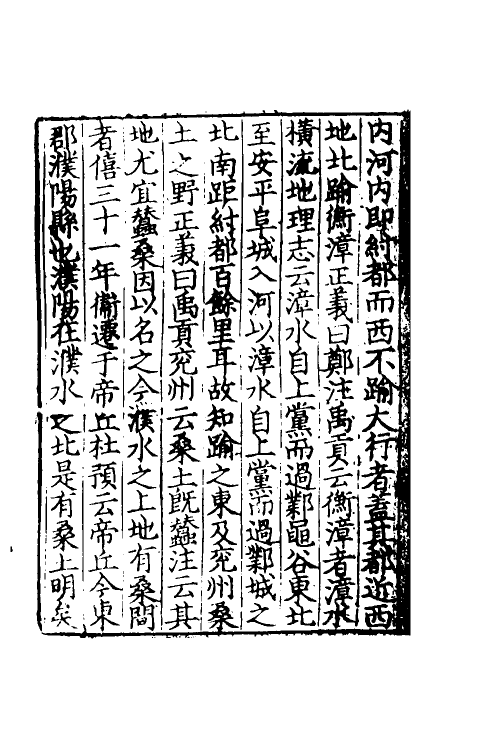 内河内即紂都而西不踰大行者蓋其都近西
地北踰衡漳正義曰鄭注禹貢云衡漳者漳水
橫流地理志云漳水自上黨而過鄴黽谷東北
至安平阜城入河以漳水自上黨而過鄴城之
北南距紂都百餘里耳故知踰之東及兖州桑
土之野正義曰禹貢兖州云桑土旣蠶注云其
地尤宜蠶桑因以名之今濮水之上地有桑間
者僖三十一年衞遷于帝丘杜預云帝丘今東
郡濮陽縣也濮陽在濮水之北是有桑土明矣